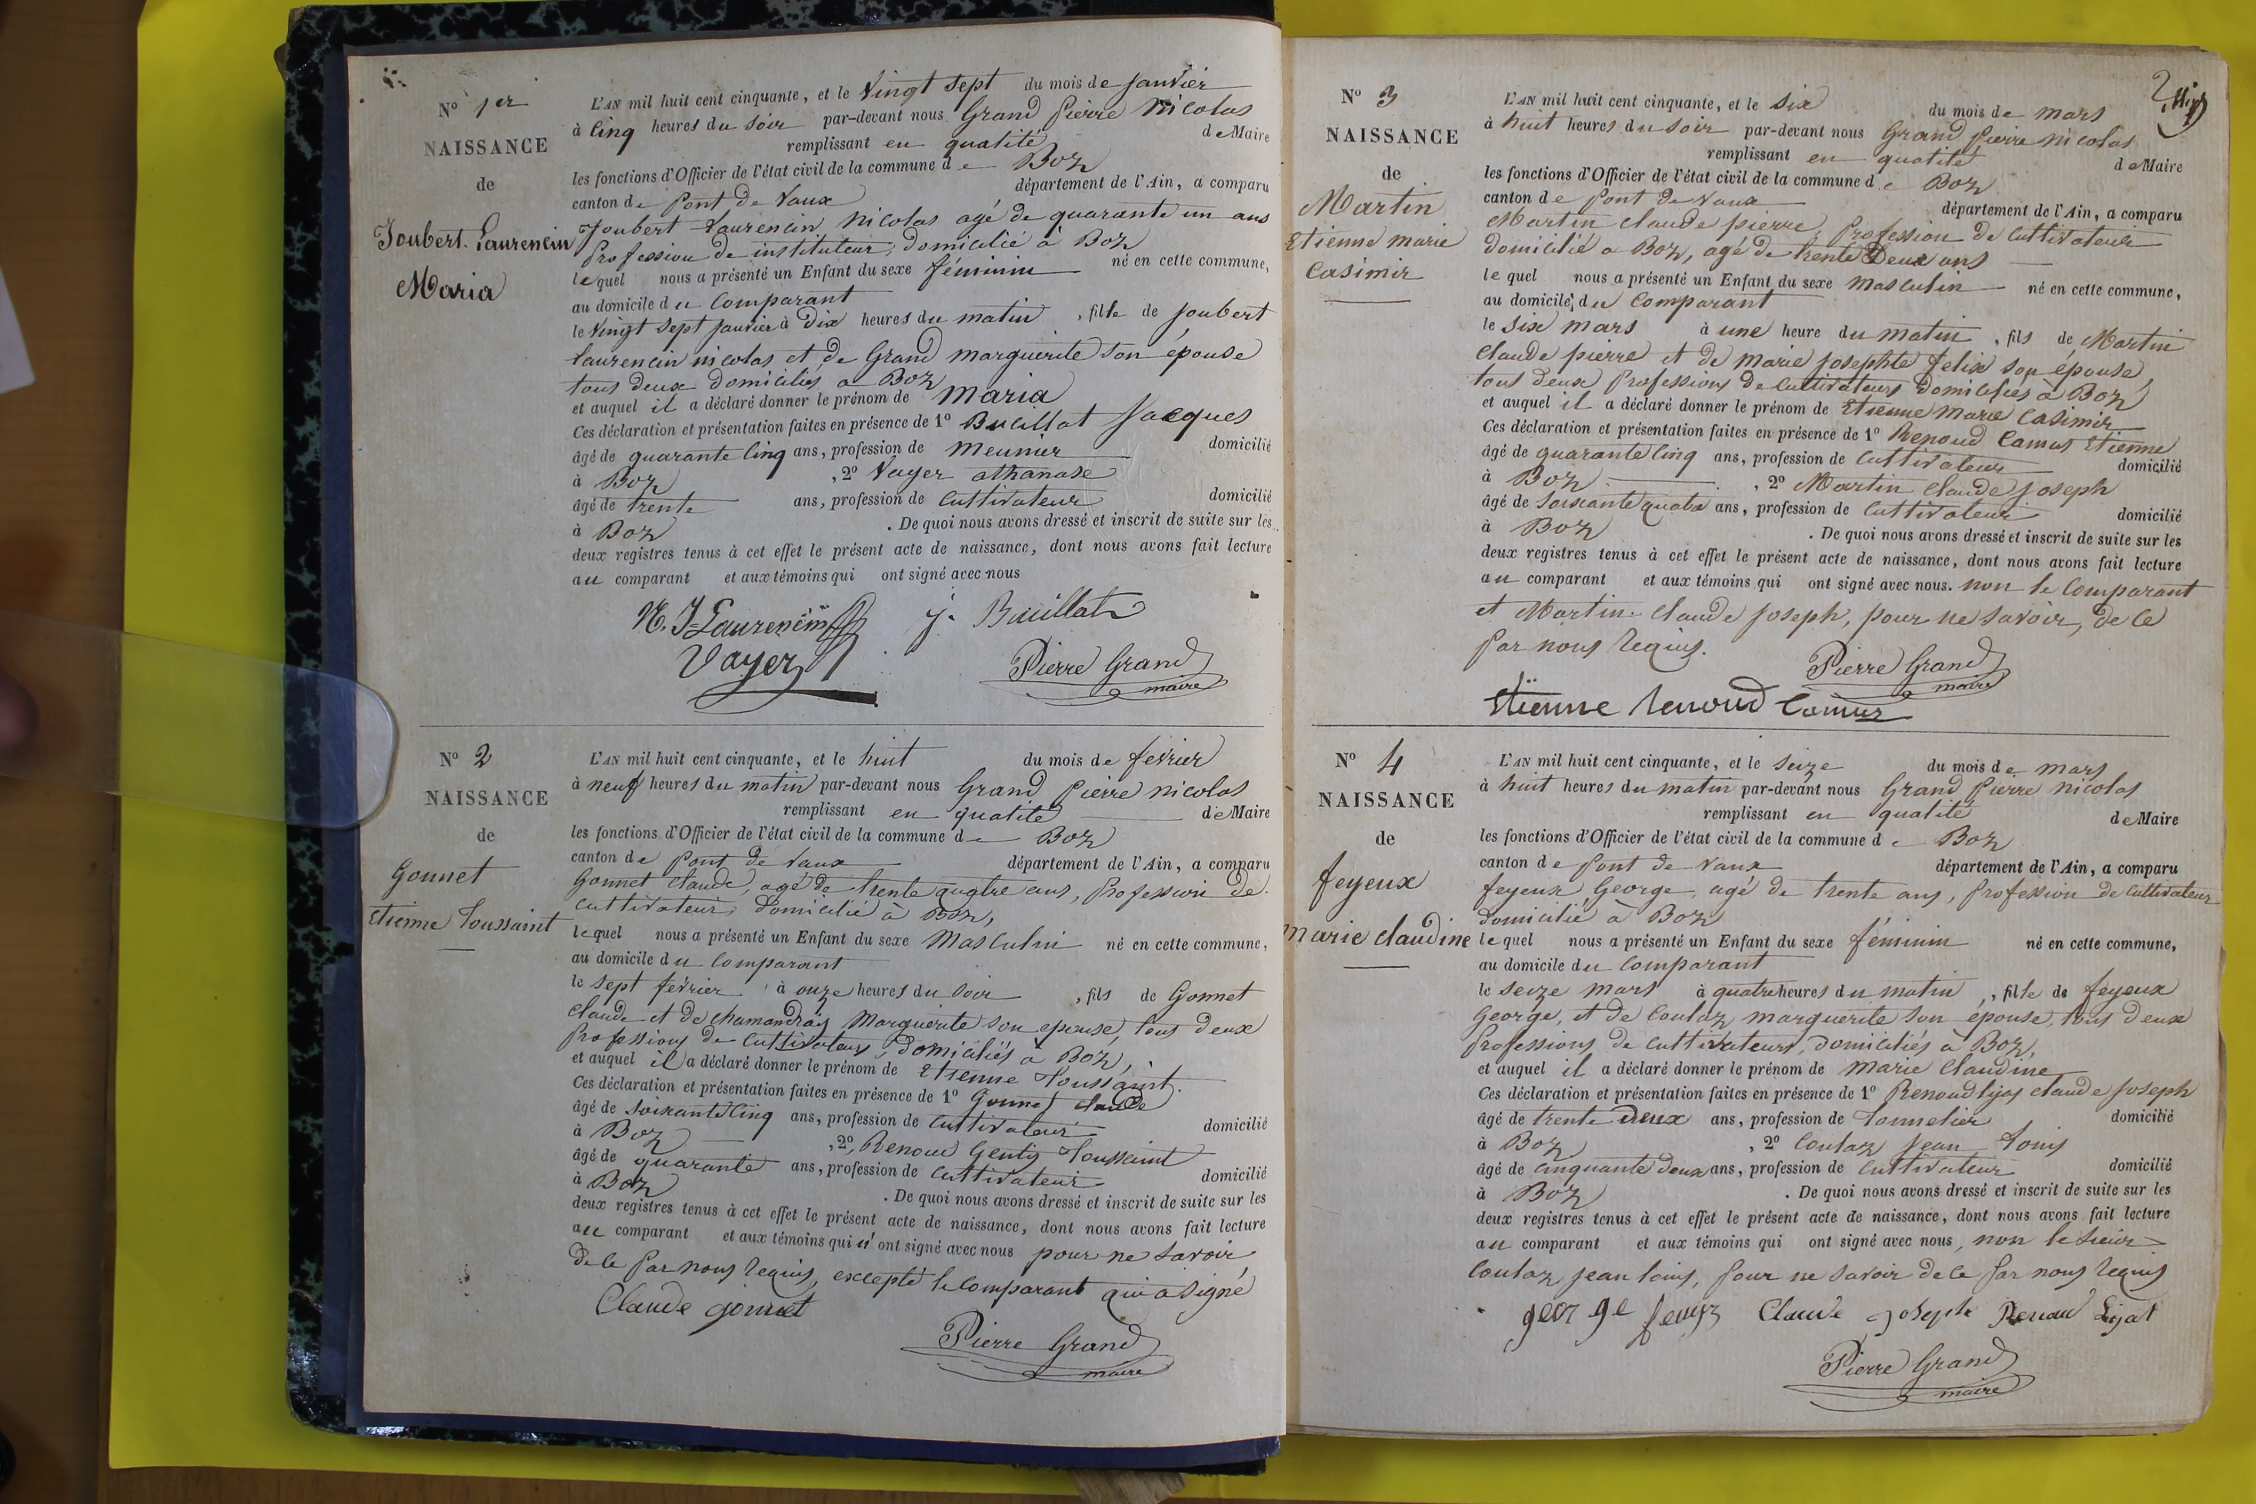 N° 1er
NAISSANCE
de
Joubert Laurencin
Maria
L'AN mil huit cent cinquante, et le Vingt sept du mois de janvier
à Cinq heures du soir par-devant nous Grand Pierre Nicolas
remplissant en qualité de Maire
les fonctions d'Officier de l'état civil de la commune de Boz
canton de Pont de Vaux département de l'Ain, a comparu
Joubert Laurencin Nicolas agé de quarante un ans
Profession de instituteur, domicilié à Boz
lequel nous a présenté un Enfant du sexe féminin né en cette commune,
au domicile du comparant
le Vingt sept janvier à Dix heures du matin, fille de Joubert
Laurencin nicolas et de Grand marguerite son épouse
tous deux domiciliés a Boz
et auquel il a déclaré donner le prénom de Maria
Ces déclaration et présentation faites en présence de 1° Buillat Jacques
âgé de quarante cinq ans, profession de meunier domicilié
à Boz, 2° Vayer athanase
âgé de trente ans, profession de cultivateur domicilié
à Boz. De quoi nous avons dressé et inscrit de suite sur les
deux registres tenus à cet effet le présent acte de naissance, dont nous avons fait lecture
au comparant et aux témoins qui ont signé avec nous
N. J-Laurencin j. Buillat
Vayer Pierre Grand
maire
N° 2
NAISSANCE
de
Gonnet
Etienne Toussaint
L'AN mil huit cent cinquante, et le huit du mois de fevrier
à neuf heures du matin par-devant nous Grand Pierre nicolas
remplissant en qualité de Maire
les fonctions d'Officier de l'état civil de la commune de Boz
canton de Pont de Vaux département de l'Ain, a comparu
Gonnet Claude, agé de trente quatre ans, Profession de
cultivateur, domicilié à Boz,
lequel nous a présenté un Enfant du sexe Masculin né en cette commune,
au domicile du comparant
le sept février à onze heures du soir, fils de Gonnet
Claude et de Chamandray Marguerite son epouse, tous deux
Professions de cultivateurs, domiciliés à Boz,
et auquel il a déclaré donner le prénom de Etienne Toussaint.
Ces déclaration et présentation faites en présence de 1° Gonnet Claude
âgé de soixante cinq ans, profession de cultivateur domicilié
à Boz, 2° Renoud Genty Toussaint
âgé de quarante ans, profession de cultivateur domicilié
à Boz. De quoi nous avons dressé et inscrit de suite sur les
deux registres tenus à cet effet le présent acte de naissance, dont nous avons fait lecture
au comparant et aux témoins qui n'ont signé avec nous pour ne savoir,
de ce Par nous requis, excepté le comparant qui a signé
Claude gonnet
Pierre Grand
maire
N° 3
NAISSANCE
de
Martin
Etienne marie
Casimir
2
L'AN mil huit cent cinquante, et le six du mois de mars
à huit heures du soir par-devant nous Grand Pierre nicolas
remplissant en qualité de Maire
les fonctions d'Officier de l'état civil de la commune de Boz
canton de Pont de Vaux département de l'Ain, a comparu
Martin Claude pierre, Profession de cultivateur
domicilié a Boz, agé de trente Deux ans
lequel nous a présenté un Enfant du sexe masculin né en cette commune,
au domicile du comparant
le six mars à une heure du matin, fils de Martin
Claude pierre et de marie josephte felix son épouse,
tous deux Professions de cultivateurs domiciliés à Boz,
et auquel il a déclaré donner le prénom de Etienne Marie Casimir
Ces déclaration et présentation faites en présence de 1° Renoud Camus Etienne
âgé de quarante cinq ans, profession de cultivateur domicilié
à Boz, 2° Martin Claude joseph
âgé de soixante quatre ans, profession de cultivateur domicilié
à Boz. De quoi nous avons dressé et inscrit de suite sur les
deux registres tenus à cet effet le présent acte de naissance, dont nous avons fait lecture
au comparant et aux témoins qui ont signé avec nous. non le comparant
et Martin Claude joseph, pour ne savoir, de ce
par nous requis.
Pierre Grand
maire
Etienne Renoud Camus
N° 4
NAISSANCE
de
feyeux
Marie Claudine
L'AN mil huit cent cinquante, et le seize du mois de mars
à huit heures du matin par-devant nous Grand Pierre nicolas
remplissant en qualité de Maire
les fonctions d'Officier de l'état civil de la commune de Boz
canton de Pont de Vaux département de l'Ain, a comparu
feyeux George agé de trente ans, Profession de cultivateur
domicilié à Boz
lequel nous a présenté un Enfant du sexe féminin né en cette commune,
au domicile du comparant
le seize mars à quatre heures du matin, fille de feyeux
George, et de Coulaz marguerite son épouse, tous deux
Professions de cultivateurs, domiciliés à Boz,
et auquel il a déclaré donner le prénom de Marie Claudine
Ces déclaration et présentation faites en présence de 1° Renoud Lyjas Claude Joseph
âgé de trente deux ans, profession de tonnelier domicilié
à Boz, 2° Coulaz Jean Louis
âgé de cinquante deux ans, profession de cultivateur domicilié
à Boz. De quoi nous avons dressé et inscrit de suite sur les
deux registres tenus à cet effet le présent acte de naissance, dont nous avons fait lecture
au comparant et aux témoins qui ont signé avec nous, non le sieur
Coulaz jean louis, pour ne savoir de ce par nous requis
george feuyz Claude joseph Renoud Lijat
Pierre Grand
maire